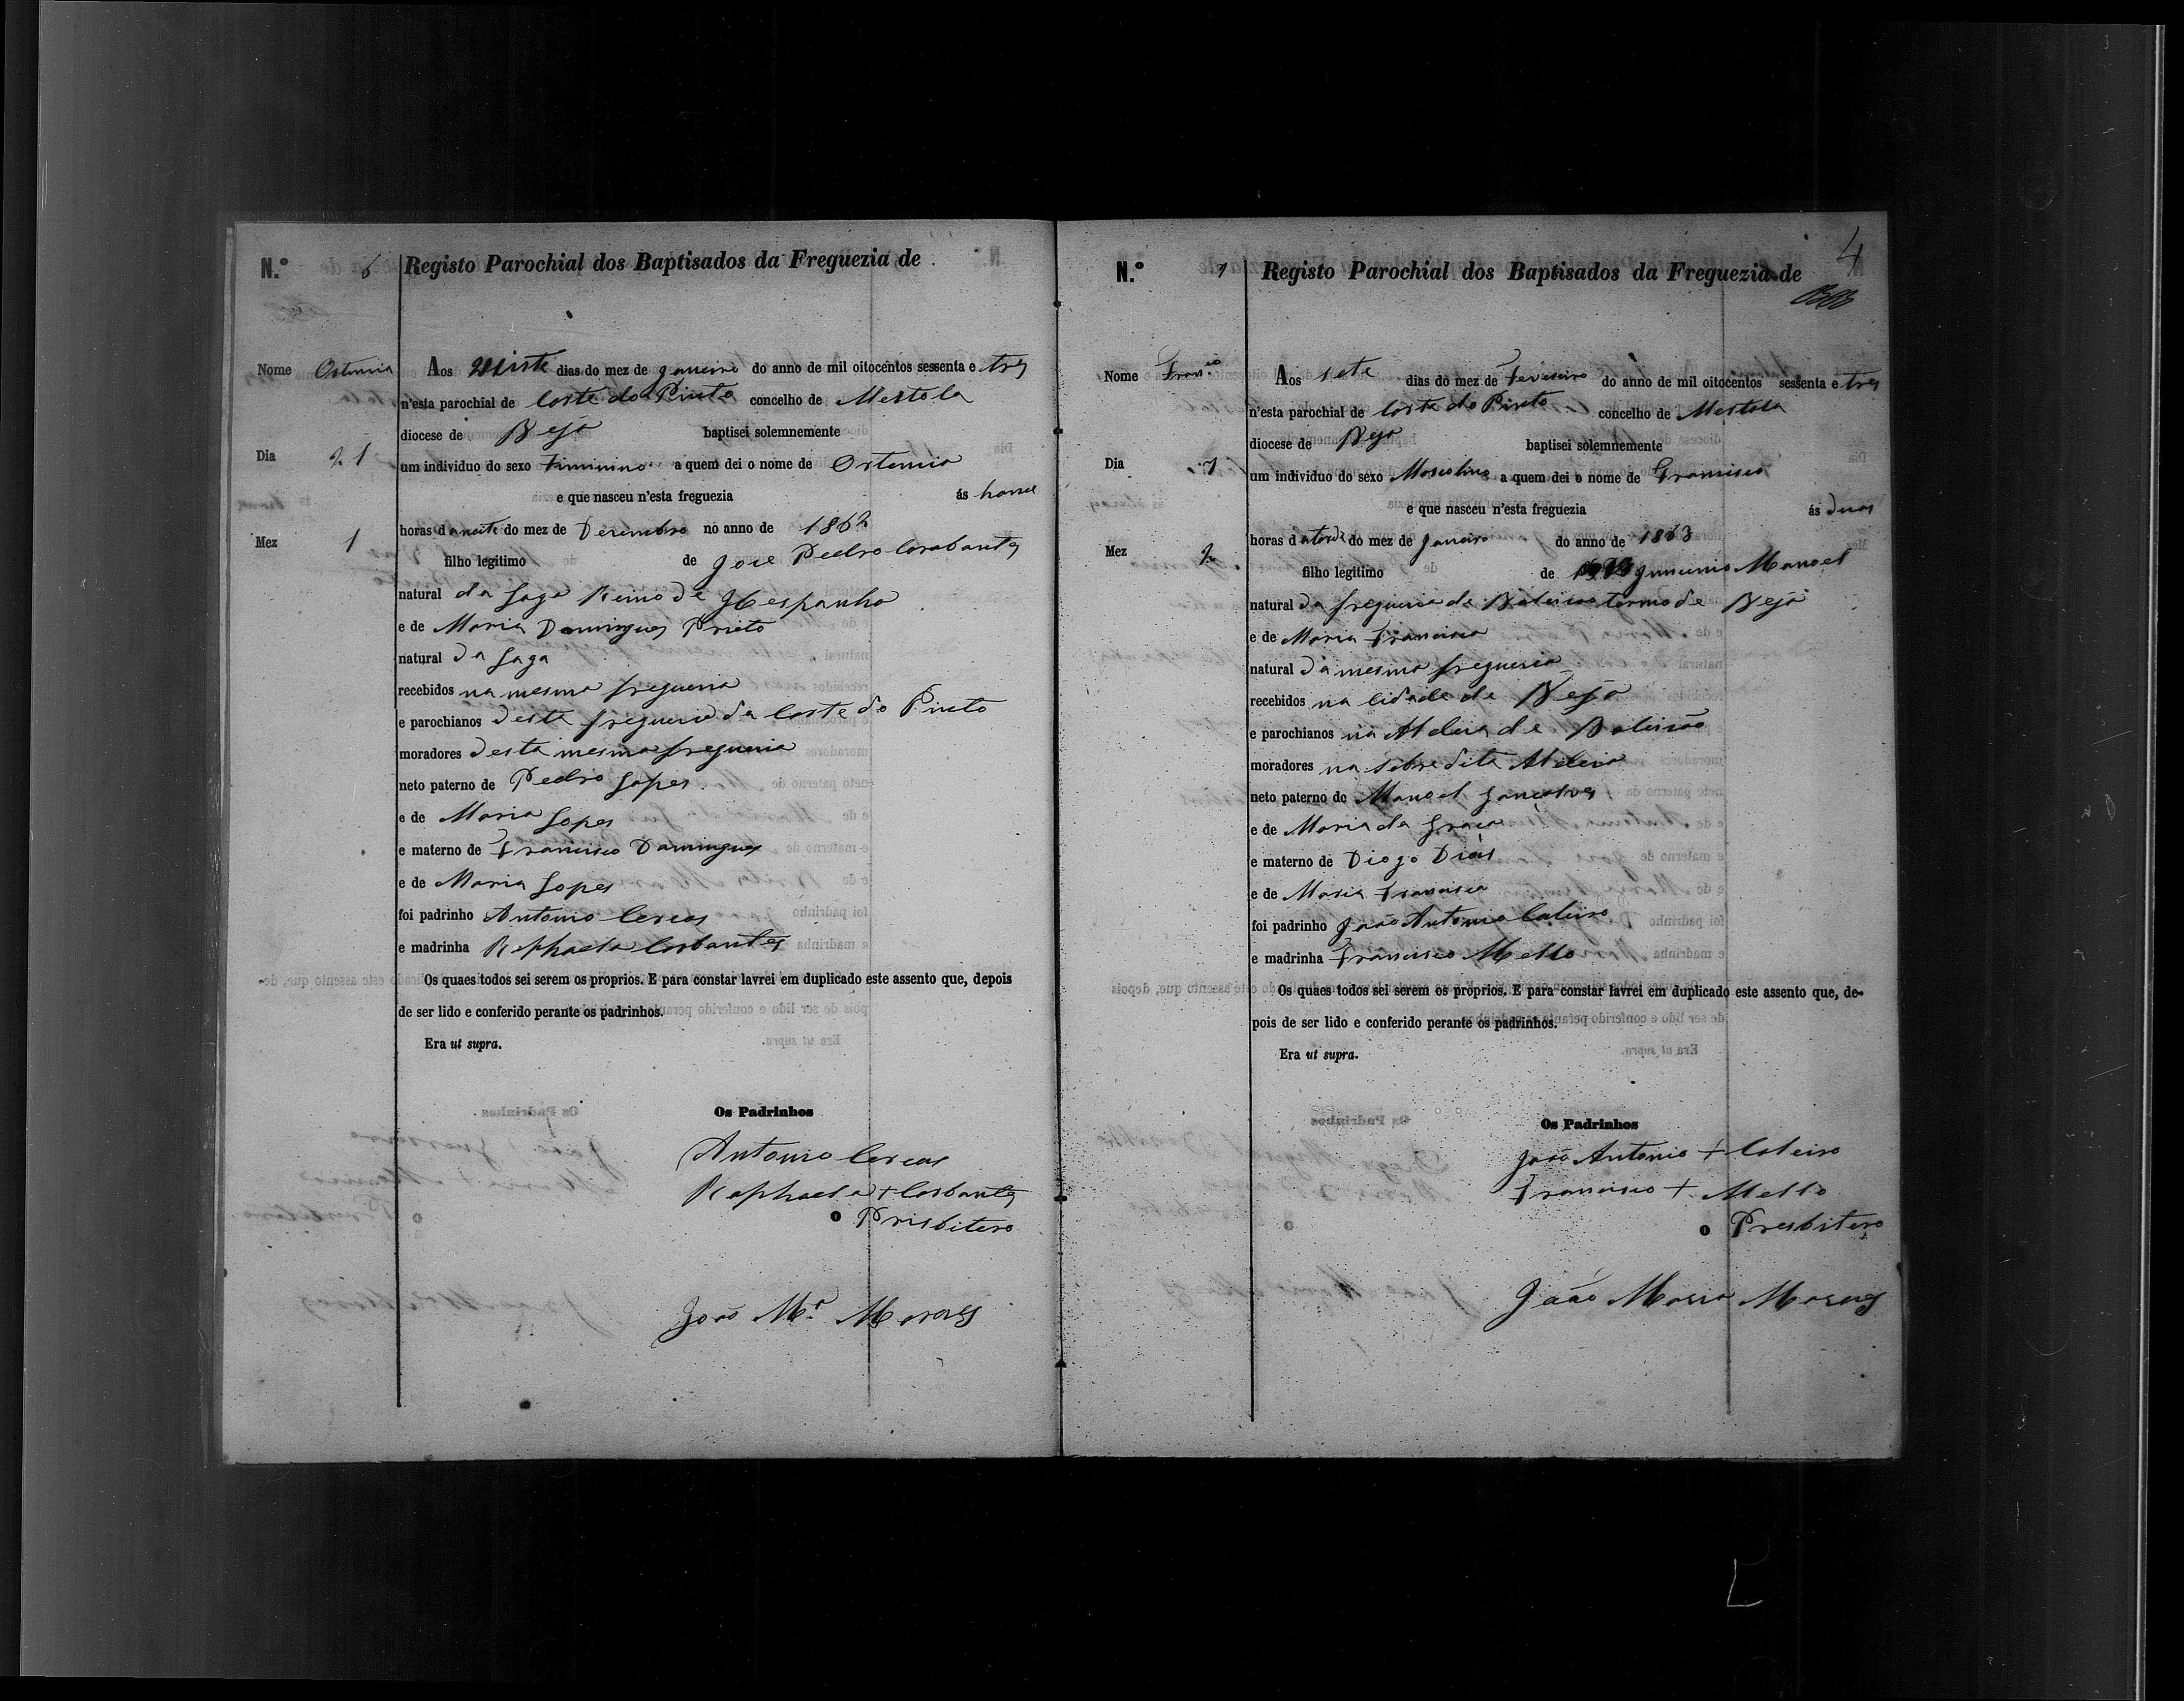 N.º 6
Registo Parochial dos Baptisados da Freguezia de
Nome Ostemia
Aos dias do mez de Janeiro do anno de mil oitocentos sessenta e tres
n'esta parochial de Corte do Pinto concelho de Mertola
diocese de Beja baptisei solemnemente
Dia 21
um individuo do sexo Fiminino a quem dei o nome de Ostemia
e que nasceu n'esta freguezia ás honse
Mez 1
horas da noite do mez de Desembro no anno de 1862
filho legitimo de Jose Pedro
natural da Reino de Hespanha
e de Maria Domingues Prieto
natural da
recebidos na mesma freguesia
e parochianos desta freguesia da Corte do Pinto
moradores desta mesma freguesia
neto paterno de Pedro Lopes
e de Maria Lopes
e materno de Francisco Domingues
e de Maria Lopes
foi padrinho Antonio Cereas
e madrinha Raphaela
Os quaes todos sei serem os proprios. E para constar lavrei em duplicado este assento que, depois
de ser lido e conferido perante os padrinhos.
Era ut supra.
Os Padrinhos
Antonio Cereas
Raphaela +
o Prisbitero
João M.ª Moraes
4
N.º 7
Registo Parochial dos Baptisados da Freguezia de
Nome Fran.co
Aos sete dias do mez de Fevereiro do anno de mil oitocentos sessenta e tres
n'esta parochial de Corte do Pinto concelho de Mertola
diocese de Beja baptisei solemnemente
Dia 7
um individuo do sexo Mascolino a quem dei o nome de Francisco
e que nasceu n'esta freguezia ás duas
Mez 2
horas da tarde do mez de Janeiro do anno de 1863
filho legitimo de Manoel
natural da freguesia de termo de Beja
e de Maria Francisca
natural da mesma freguesia
recebidos na Cidade de Beja
e parochianos na Aldeia de
moradores na sobre dita Aldeia
neto paterno de Manoel Gonçalves
e de Maria da Graça
e materno de Diogo Dias
e de Maria Francisca
foi padrinho João Antonio Cateiro
e madrinha Francisca Mello
Os quaes todos sei serem os proprios. E para constar lavrei em duplicado este assento que, de-
pois de ser lido e conferido perante os padrinhos.
Era ut supra.
Os Padrinhos
João Antonio + Cateiro
Francisca + Mello
o Presbitero
João Maria Moraes